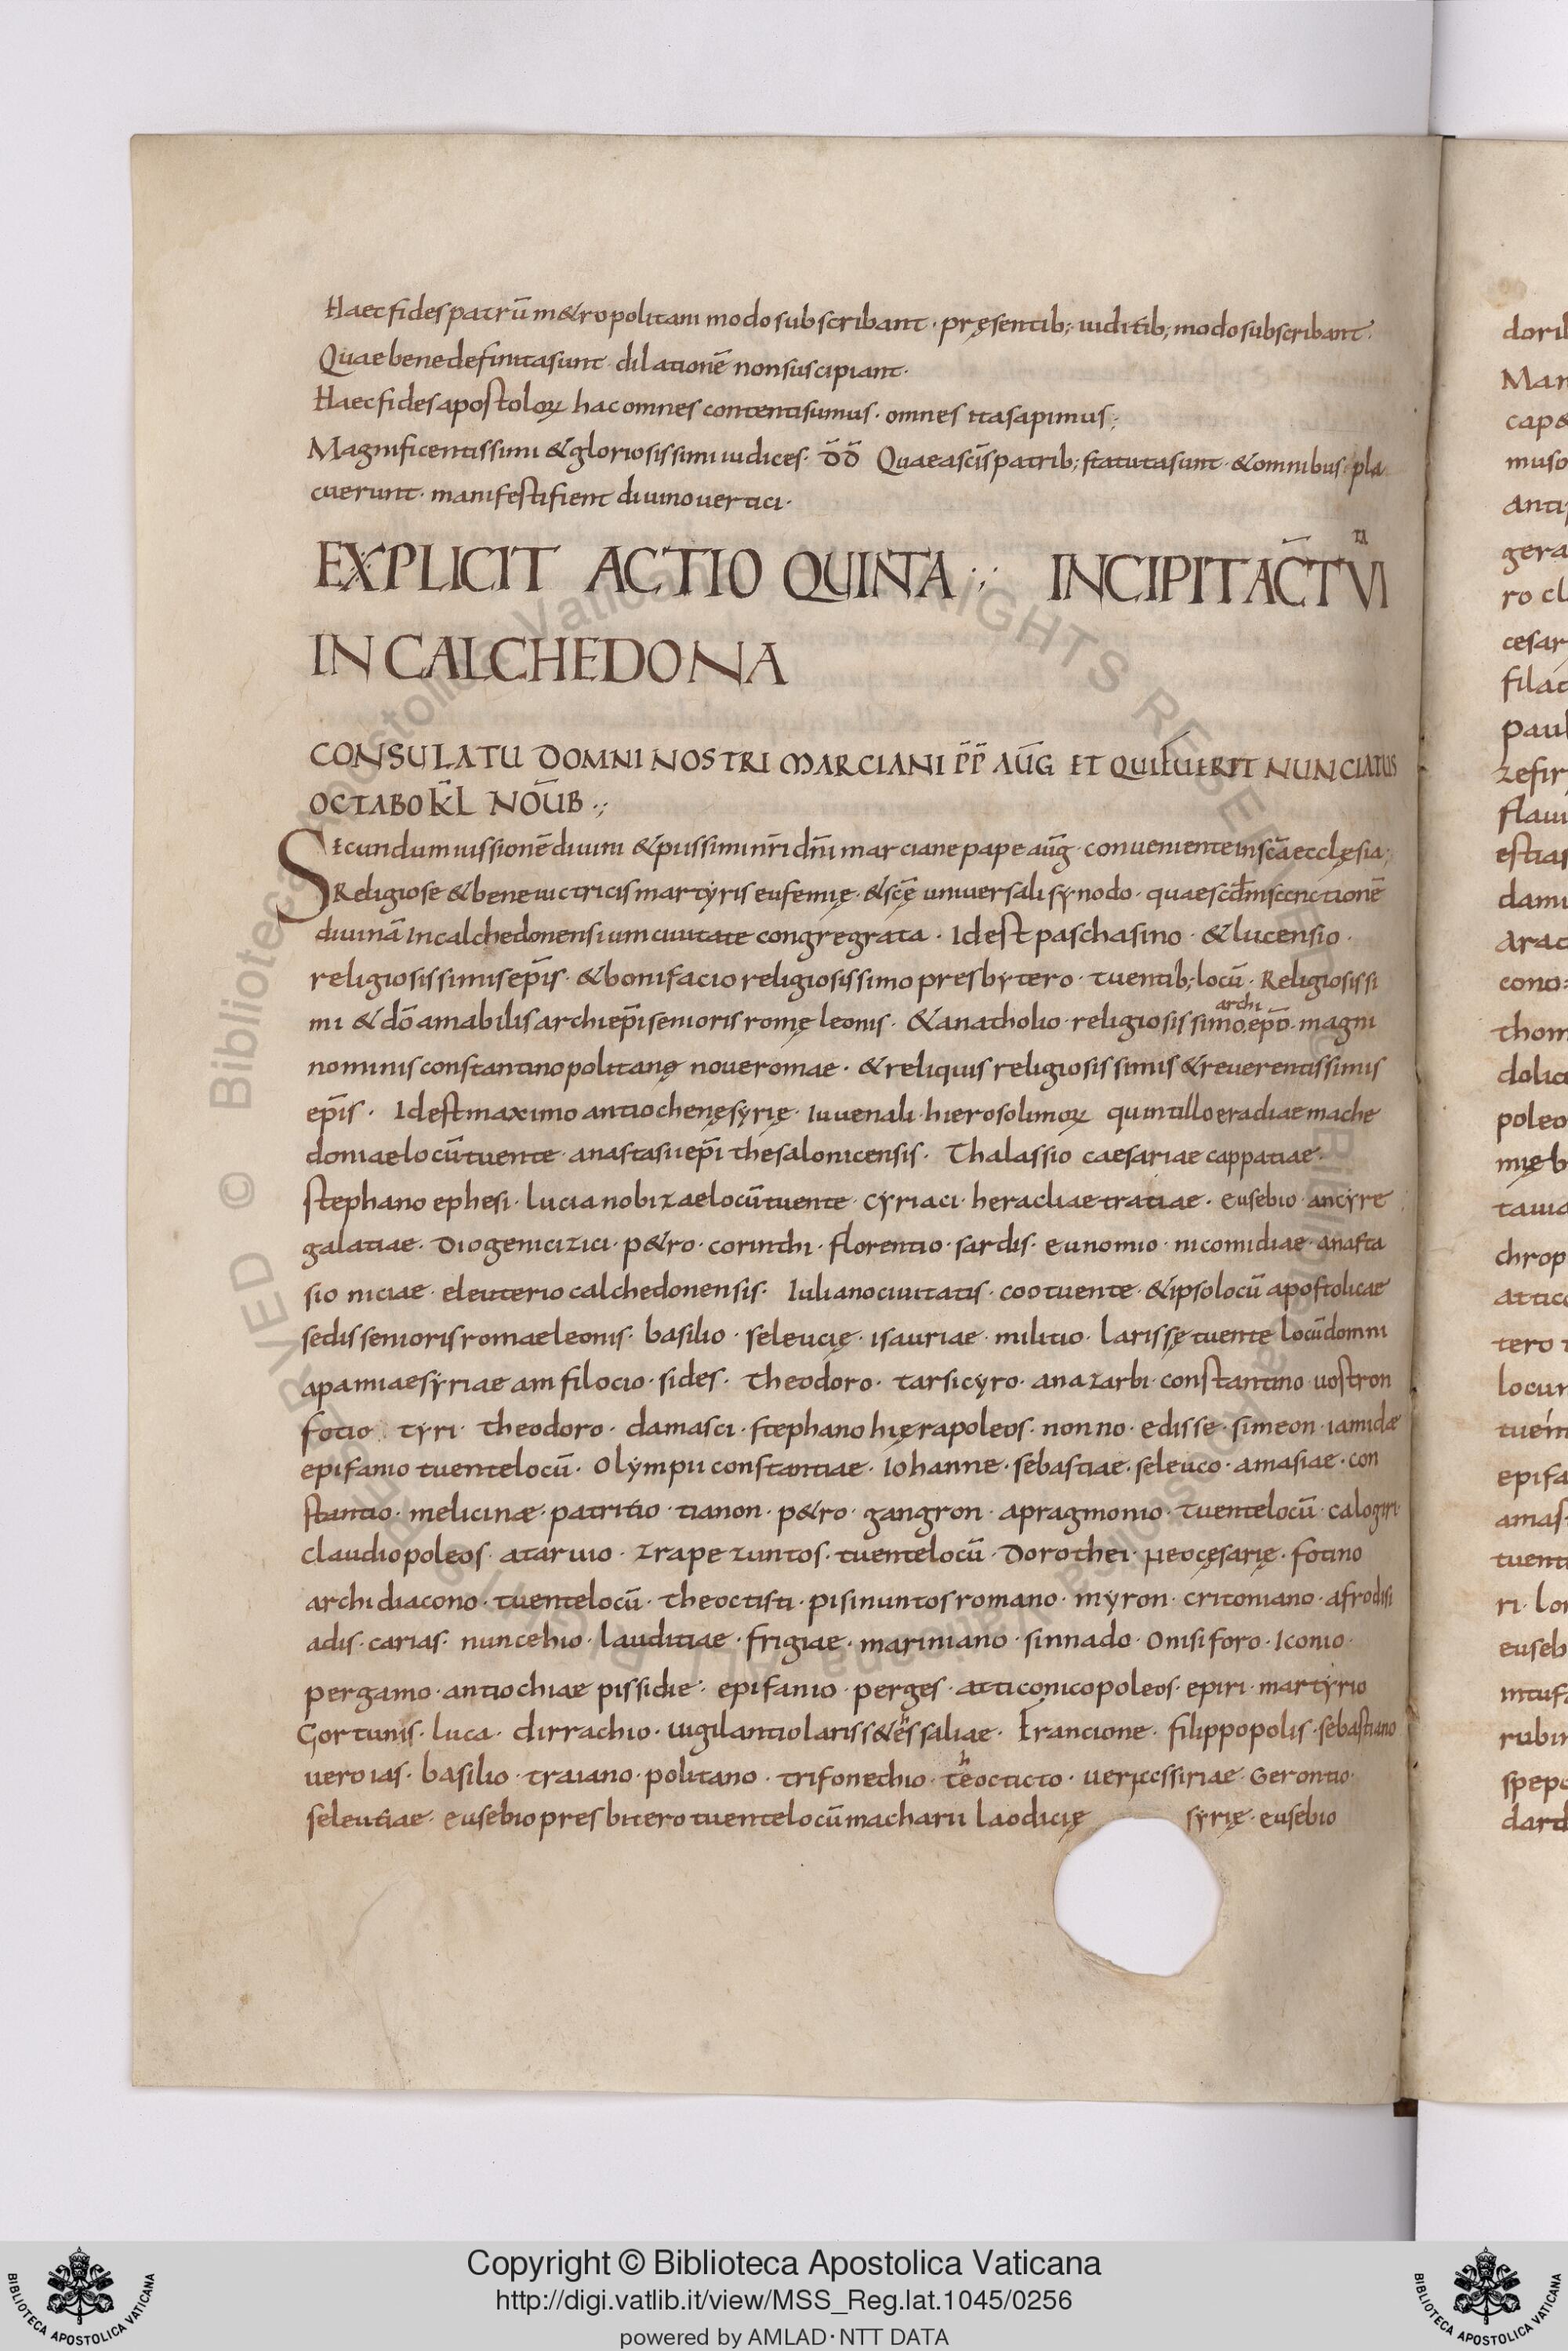 Haec fides patrū m&ropolitani modo subscribant · pręsentib; iuditib; modo subscribant ·
Quae bene definita sunt dilationē non suscipiant ·
Haec fides apostoloꝝ hac omnes contenti sumus · omnes ita sapimus ;
Magnificentissimi & gloriosissimi iudices · d̄d̄ Quae a sc̄is patrib; statuta sunt · & omnibus · pla
cuerunt · manifesti fient diuino uertici ·
EXPLICIT ACTIO QUINTA INCIPIT AC̄T VI TA
IN CALCHEDONA
CONSULATU DOMNI NOSTRI MARCIANI P̄P̄ AŪG ET QUI FUERIT NUNCIATUS
OCTABO K̄L NOŪB
Secundum iussionē diuini & piissimi nr̄i dn̄i marciane pape aūg · conueniente in sc̄a ecclęsia ;
Religiose & bene uictricis martyris eufemię · & sc̄ę uniuersali synodo · quae
diuinā In calchedonensium ciuitate congregrata · Id est paschasino · & lucensio ·
religiosissimis ep̄is · & bonifacio religiosissimo presbytero · tuentib; locū · Religiosissi
mi & dō amabilis archiep̄i senioris romę leonis · & anatholio · religiosissimo archi ep̄o · magni
nominis constantinopolitanę noue romae · & reliquis religiosissimis & reuerentissimis
ep̄is · Id est maximo antiochenę syrię · Iuuenali · hierosolimoꝝ quintillo eradiae mache
doniae locū tuente · anastasii ep̄i thesalonicensis · Thalassio caesariae cappatiae ·
stephano ephesi · luciano bizae locū tuente · cyriaci · heracliae tratiae · eusebio · ancyre
galatiae · Diogeni cizici · p&ro · corinthi · florentio · sardis · eunomio · nicomidiae · anasta
sio niciae · eleuterio calchedonensis · Iuliano ciuitatis · coo tuente · & ipso locū apostolicae
sedis senioris romae leonis · basilio · seleucię · isauriae · militio · larissę tuente locū domni
apamiae syriae amfilocio · sides · theodoro · tarsi cyro · anazarbi · constantino uostron
fotio tyri · theodoro · damasci · stephano hięrapoleos · nonno · edisse · simeon · iamidæ
epifanio tuente locū · Olympii constantiae · Iohanne · sebastiae · seleuco · amasiae · con
stantio · melicinæ · patritio · tianon · p&ro · gangron · apragmonio · tuente locū · calogiri ·
claudiopoleos · ataruio · zrapezuntos · tuente locū · Dorothei · neocęsarię · fotino
archidiacono · tuente locū · theoctisti · pisinuntos romano · myron · critoniano · afrodisi
adis · carias · nuncehio · lauditiae · frigiae · mariniano · sinnado · Onisiforo · Iconio ·
pergamo · antiochiae pissidie · epifanio · perges · attico nicopoleos · epiri · martyrio
Gortunis · luca · dirrachio · uigilantio lariss& ēhssaliae · Francione · filippopolis · sebastiano
ueroias · basilio · traiano · politano · trifone chio · thēocticto · siriae · Gerontio ·
seleutiae · eusebio presbitero tuente locū macharii laodicię syrię · eusebio
dorib
Man
cap&
muso
anti
gera
ro cl
cesar
filad
paul
zefir
flaui
estias
dami
arac
cono
thom
dolic
poleo
mię b
tauia
chrop
attico
tero t
locum
tuen
epifa
amas
tuent
ri · lon
euseb
intuf
rubin
spepo
dard
RESERVED © Biblioteca Apostolica Vaticana ALL RIGHTS RESERVED
Copyright © Biblioteca Apostolica Vaticana
http://digi.vatlib.it/view/MSS_Reg.lat.1045/0256
powered by AMLAD·NTT DATA
BIBLIOTECA APOSTOLICA VATICANA
BIBLIOTECA APOSTOLICA VATICANA